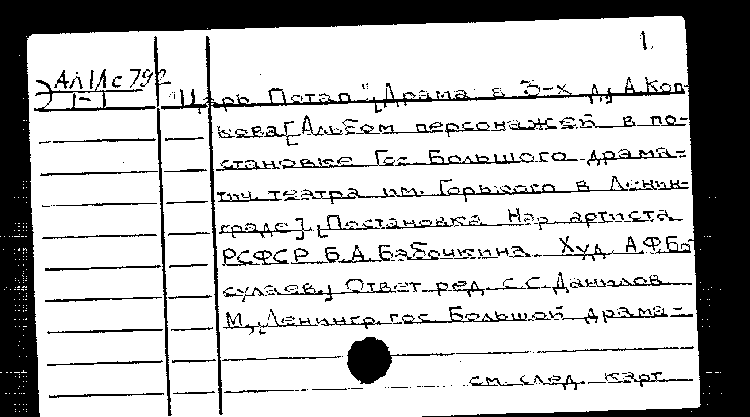 1.
АлIIс792
1-1
"Царь Потап" [Драма в 3-х д., А. Коп-
кова [Альбом персонажей в по-
становке Гос Большого драма-
тич. театра им. Горького в Ленин-
граде]. [Постановка Нар артиста
РСФСР Б.А. Бабочкина. Худ. А.Ф. Бо
сулаев., Ответ ред. С.С. Данилов
М., Ленингр. гос Большой драма-
см. след. карт